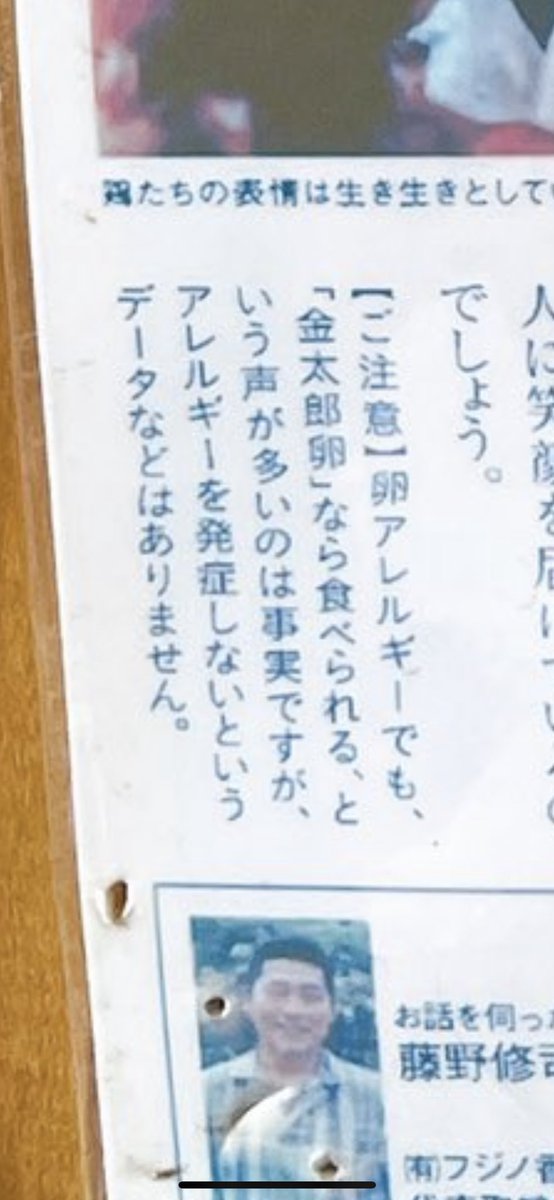 鶏たちの表情は生き生きとして
人に笑顔を届けている
でしょう。
【ご注意】卵アレルギーでも、
「金太郎卵」なら食べられる、と
いう声が多いのは事実ですが、
アレルギーを発症しないという
データなどはありません。
お話を伺っ
藤野修司
㈲フジノ香